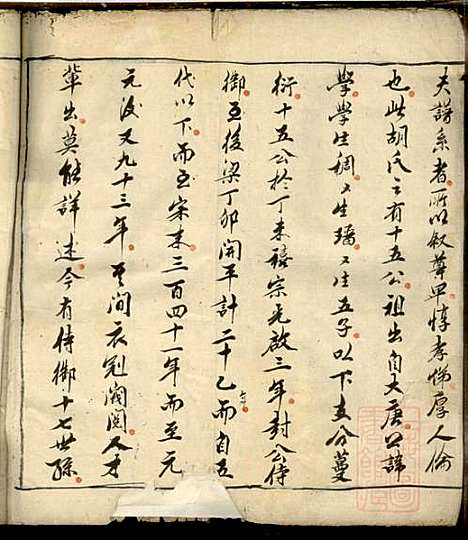 夫譜系者所以叙尊卑惇孝悌厚人倫
也此胡氏之有十五公祖出自大唐公諱
學學生稠〻生璠〻生五子以下支分蔓
衍十五公於丁未禧宗光啟三年封公侍
御至後梁丁卯開平計二十乙而自五
代以下而至宋末三百四十一年而至元
元後又九十三年其间衣冠阀阅人才
輩出莫能詳述今有侍御十七世孫